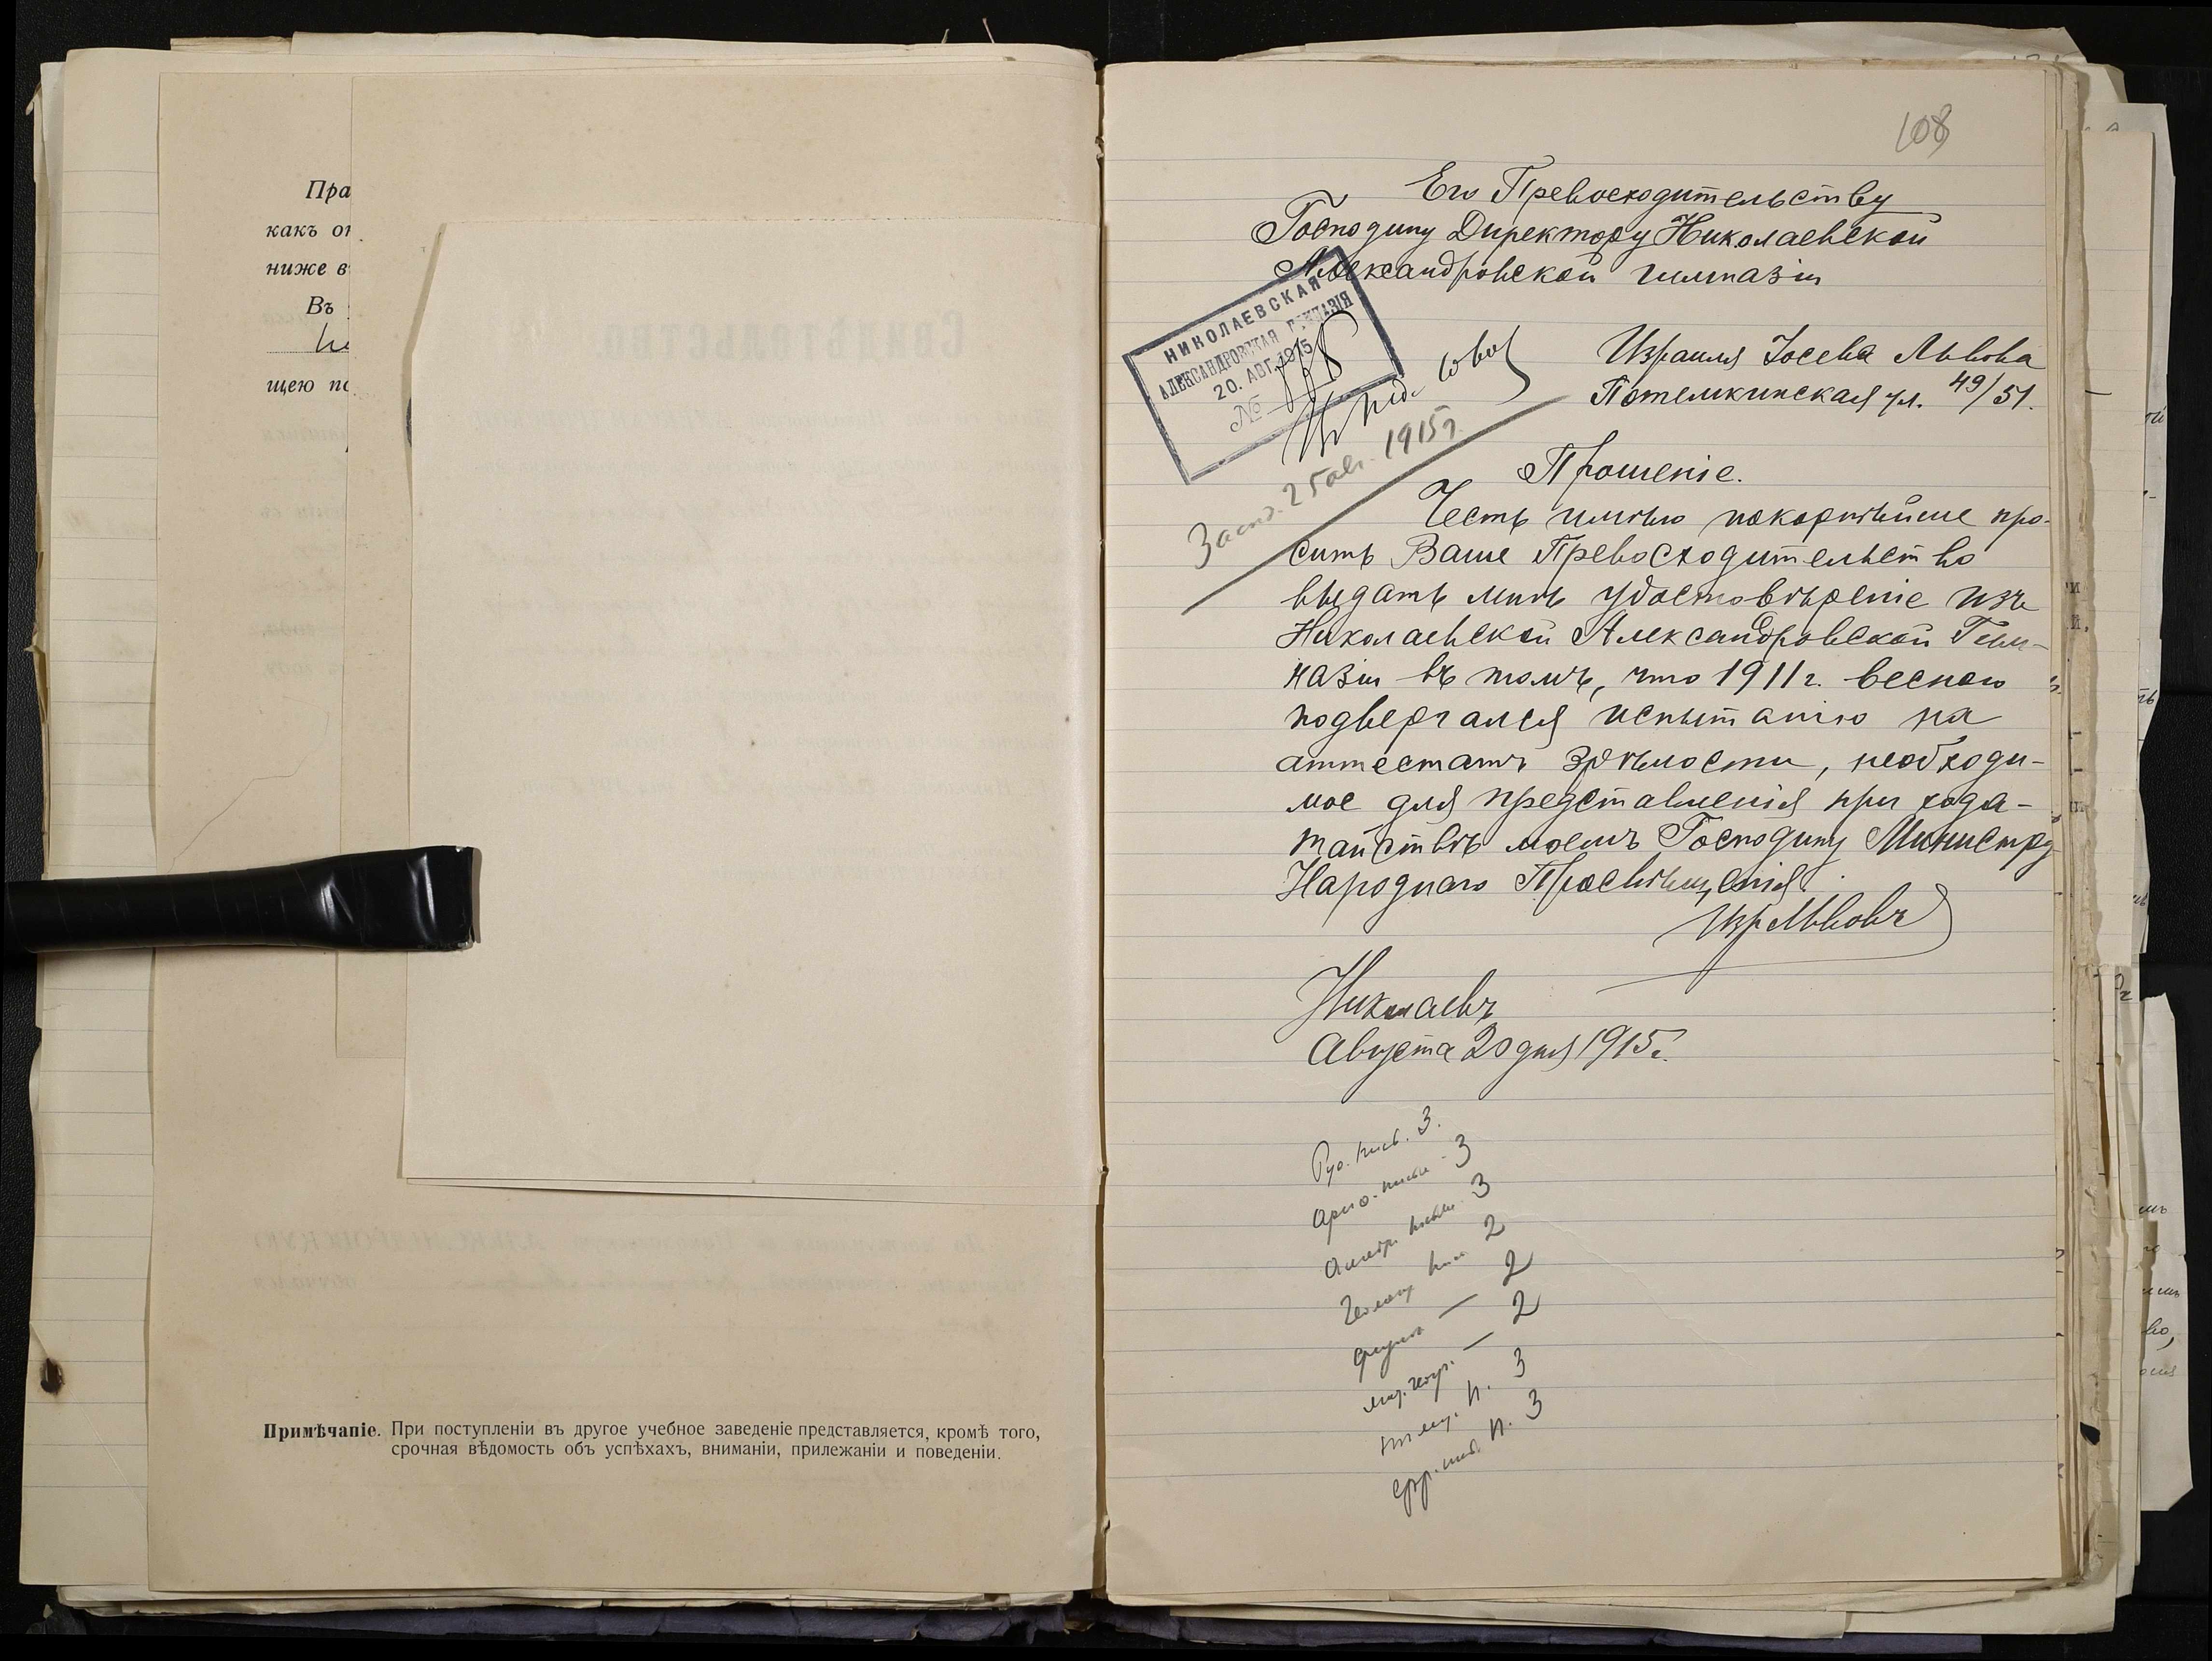 Пра
какъ оп
ниже в
Въ
щею по
Примѣчаніе. При поступленіи въ другое учебное заведеніе представляется, кромѣ того,
срочная вѣдомость объ успѣхахъ, вниманіи, прилежаніи и поведеніи.
108
Его Превосходительству
Господину Директору Николаевской
Александровской гимназіи
НИКОЛАЕВСКАЯ
АЛЕКСАНДРОВСКАЯ ГИМНАЗІЯ
20. АВГ. 1915
№
Израиля Іосева Львова
Потемкинская ул. 49/51.
25 авг. 1915 г.
Прошеніе.
Честь имѣю покорнѣйше про-
сить Ваше Превосходительство
выдать мнѣ удостовѣреніе изъ
Николаевской Александровской Гим-
назіи въ томъ, что 1911 г. весною
подвергался испытанію на
аттестатъ зрѣлости, необходи-
мое для представленія при хода-
тайствѣ моемъ Господину Министру
Народнаго Просвѣщенія.
Изр Львовъ
Николаевъ
Августа 20 дня 1915 г.
3.
3
3
2
2
2
п. 3
п. 3